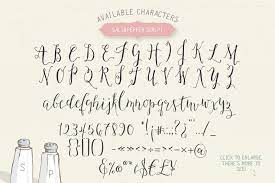 AVAILABLE CHARACTERS
SALT&PEPPER SCRIPT
A B C D E F G H I J K L M
N O P Q R S T U V W X Y Z
abcdefghijklmnopqrstuvwxyz
1234567890
CLICK TO ENLARGE
THERE'S MORE TO
SEE!
S P